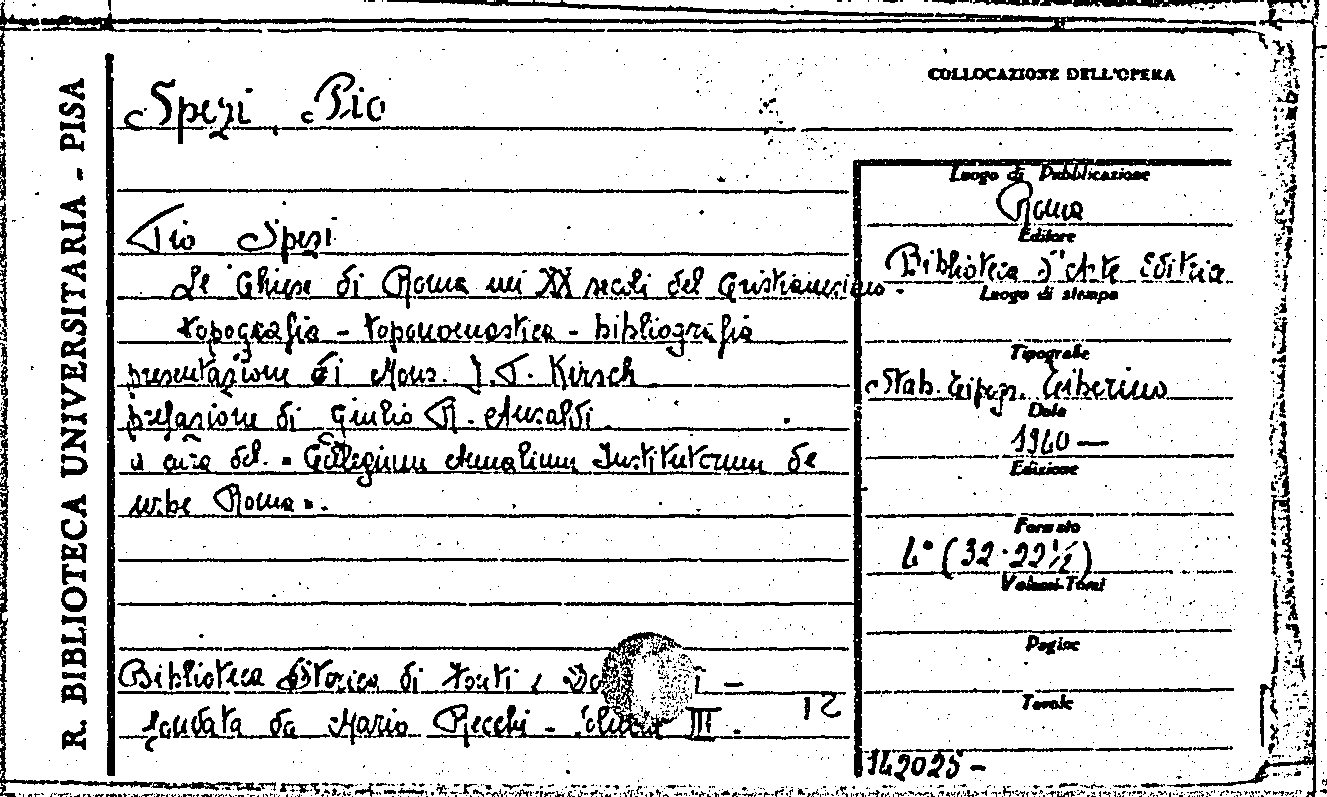 R. BIBLIOTECA UNIVERSITARIA - PISA
COLLOCAZIONE DELL'OPERA
Spezi, Pio
Pio Spezi
Le Chiese di Roma nei XX secoli del Cristianesimo -
topografia - toponomastica - bibliografia
presentazione di Mons. J. P. Kirsch
prefazione di Giulio R. Ansaldi.
a cura del "Collegium Annalium Institutorum de
urbe Roma".
Biblioteca Storica di Fonti e
fondata da Mario Recchi - III.
12
Luogo di Pubblicazione
Roma
Editore
Biblioteca d'Arte Editrice
Luogo di stampa
Tipografie
Stab. tipogr. Tiberino
Data
1940 —
Edizione
Formato
4° (32 · 22½)
Volumi-Tomi
Pagine
Tavole
142025 -